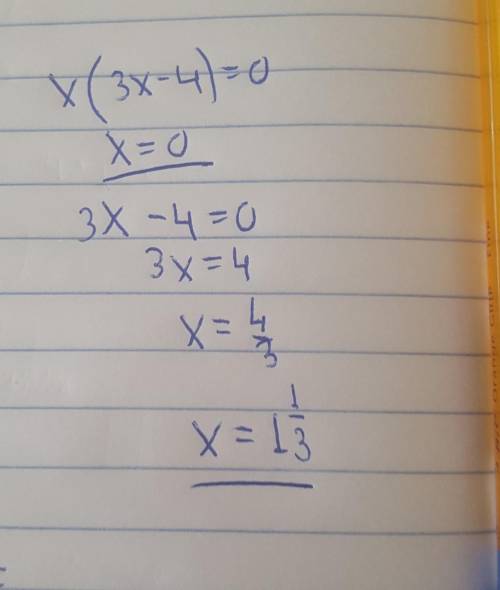 x(3x-4)=0
x=0
3x-4=0
3x=4
x=4/3
x=1 1/3